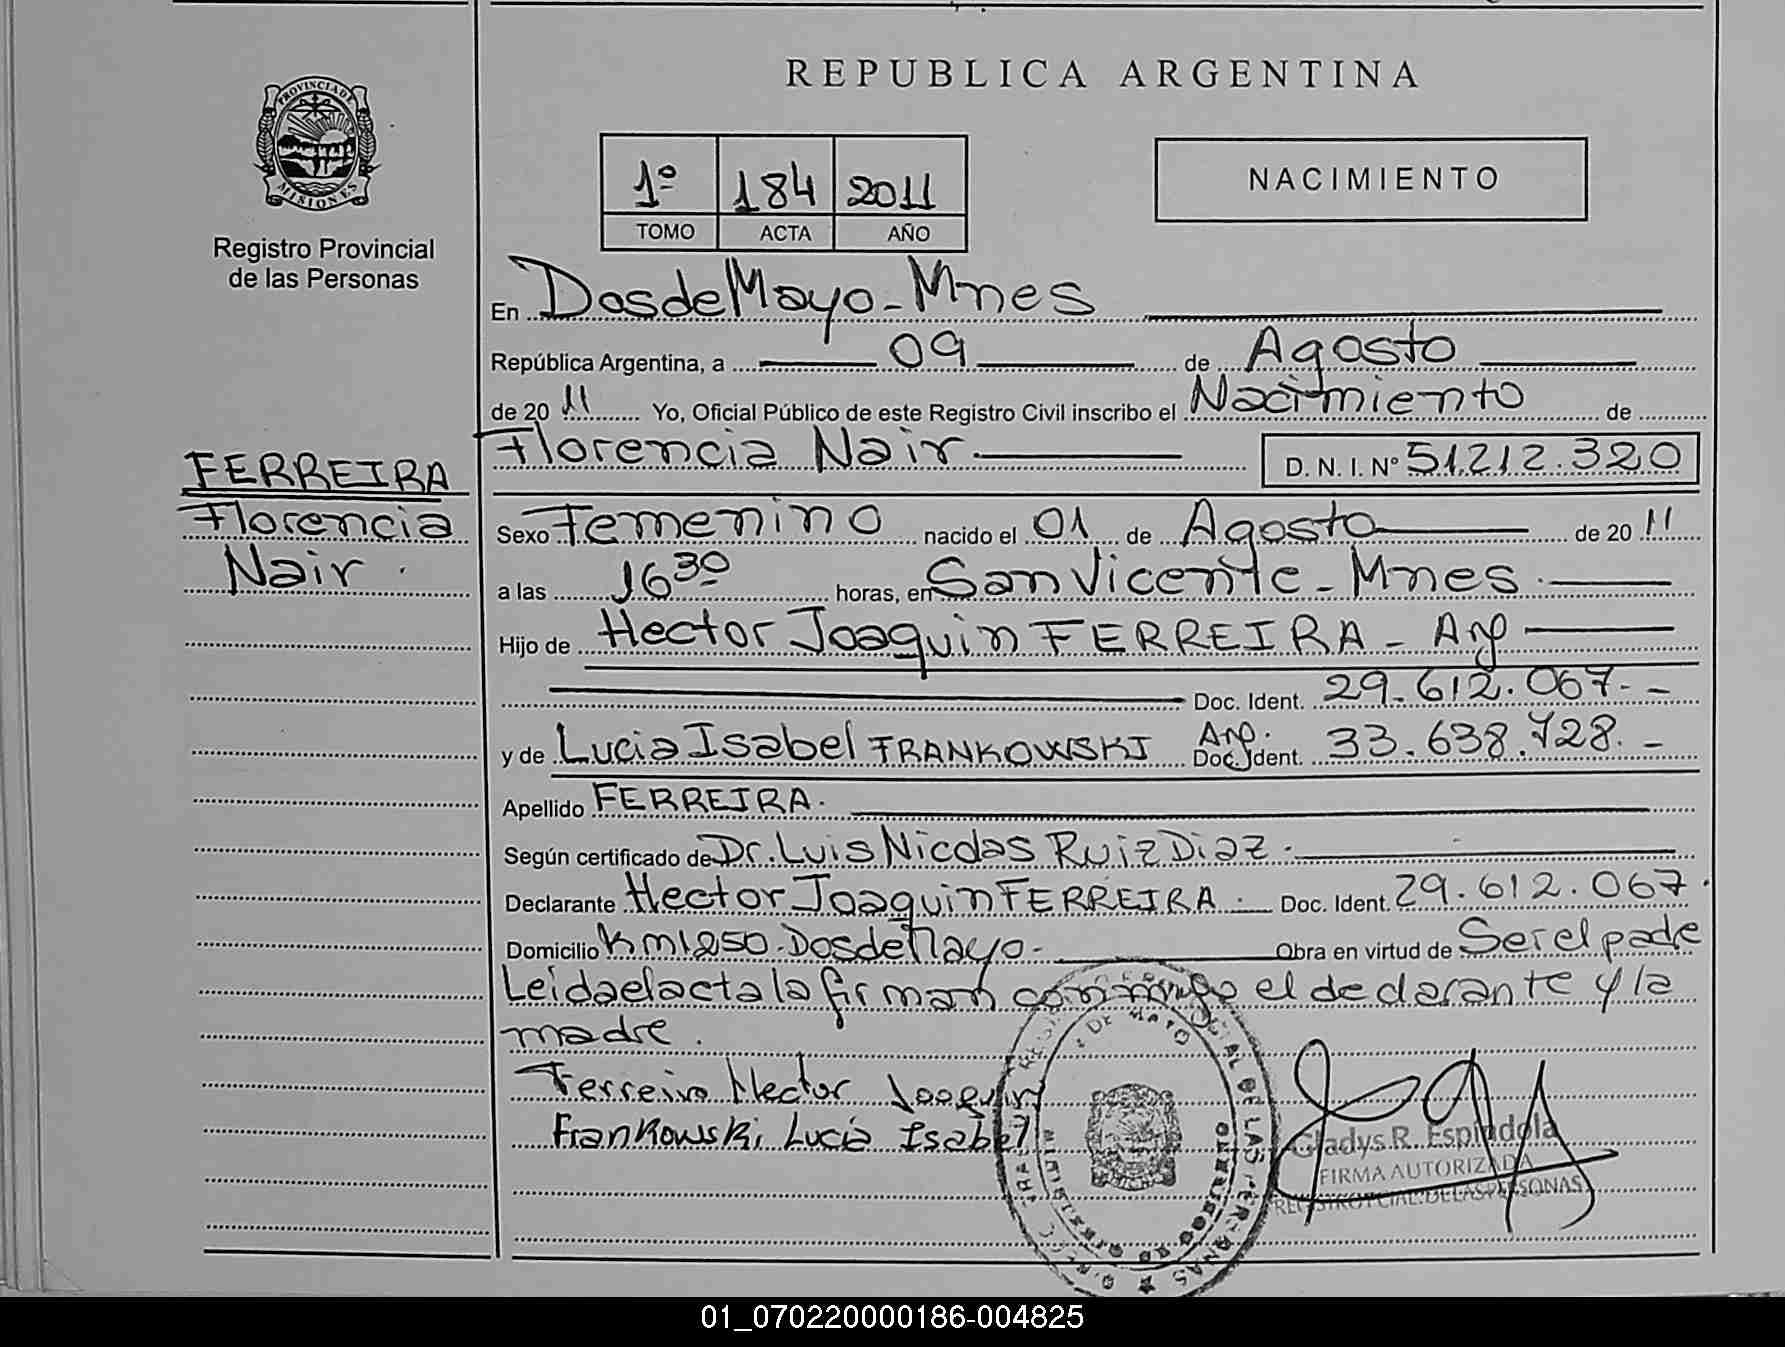 REPUBLICA ARGENTINA
PROVINCIA DE
MISIONES
Registro Provincial
de las Personas
1º 184 2011
TOMO ACTA AÑO
NACIMIENTO
En Dos de Mayo - Mnes
República Argentina, a 09 de Agosto
de 20 11 Yo, Oficial Público de este Registro Civil inscribo el Nacimiento de
Florencia Nair D. N. I. Nº 51.212.320
FERREIRA
Florencia
Nair.
Sexo Femenino nacido el 01 de Agosto de 20 11
a las 16 30 horas, en San Vicente - Mnes.
Hijo de Hector Joaquin FERREIRA - Arg
Doc. Ident. 29.612.067.-
y de Lucia Isabel FRANKOWSKI Arg. Doc. Ident. 33.638.728.-
Apellido FERREIRA.
Según certificado de Dr. Luis Nicolas Ruiz Diaz.
Declarante Hector Joaquin FERREIRA. Doc. Ident. 29.612.067.
Domicilio Km 1250. Dos de Mayo- Obra en virtud de Ser el padre
Leida el acta la firman conmigo el declarante y la
madre.
Ferreira Hector Joaquin
Frankowski Lucia Isabel
Gladys R. Espindola
FIRMA AUTORIZADA
REGISTRO PCIAL. DE LAS PERSONAS
01_070220000186-004825